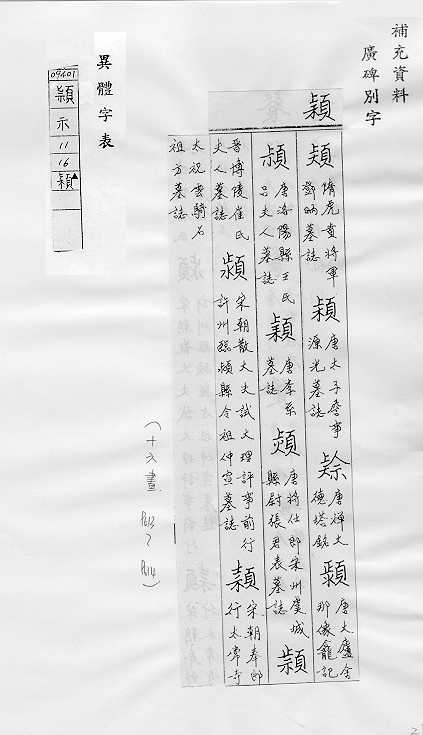 補充資料
廣碑別字
穎
頴 隋虎賁將軍
鄧昞墓誌
穎 唐太子詹事
源光墓誌
唐禪大
德塔銘
唐大盧舍
那像龕記
唐洛陽縣王氏
呂夫人墓誌
穎 唐李系
墓誌
唐將仕郎宋州虞城
縣尉張君表墓誌
頴
晉博陵崔氏
夫人墓誌
潁 宋朝散大夫試大理評事前行
許州臨潁縣令祖仲宣墓誌
宋朝奉郎
行太常寺
太祝雲騎石
祖方墓誌
(十六畫
異體字表
09401
穎
示
11
16
穎